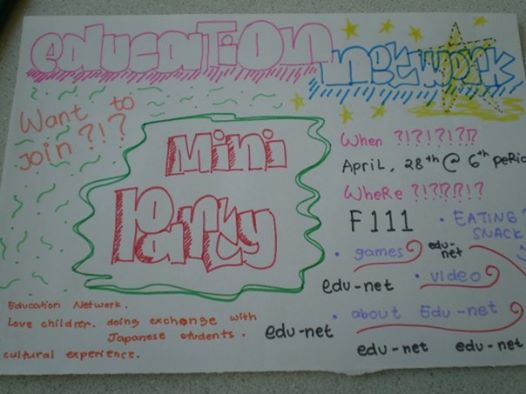 education
network
Want to
join ?!?
Mini
Party
When ?!?!?!?
April, 28th @ 6th
Where ?!????!?
F111
• EATING
SNACK
• games
edu-net
edu-net
• video
• about Edu-net
edu-net
edu-net
edu-net
Education Network.
Love children. doing exchange with
Japanese students.
cultural experience.